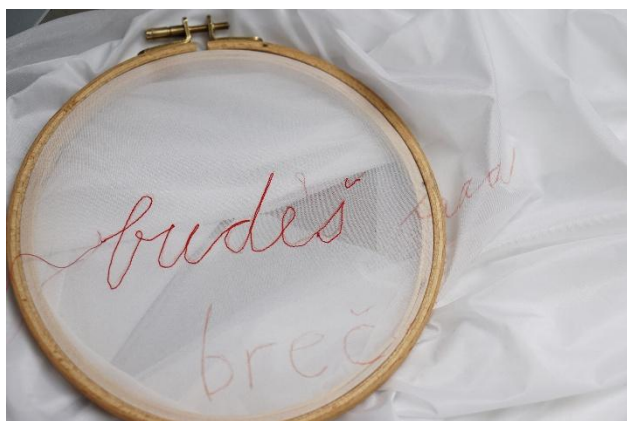 budeš
breč